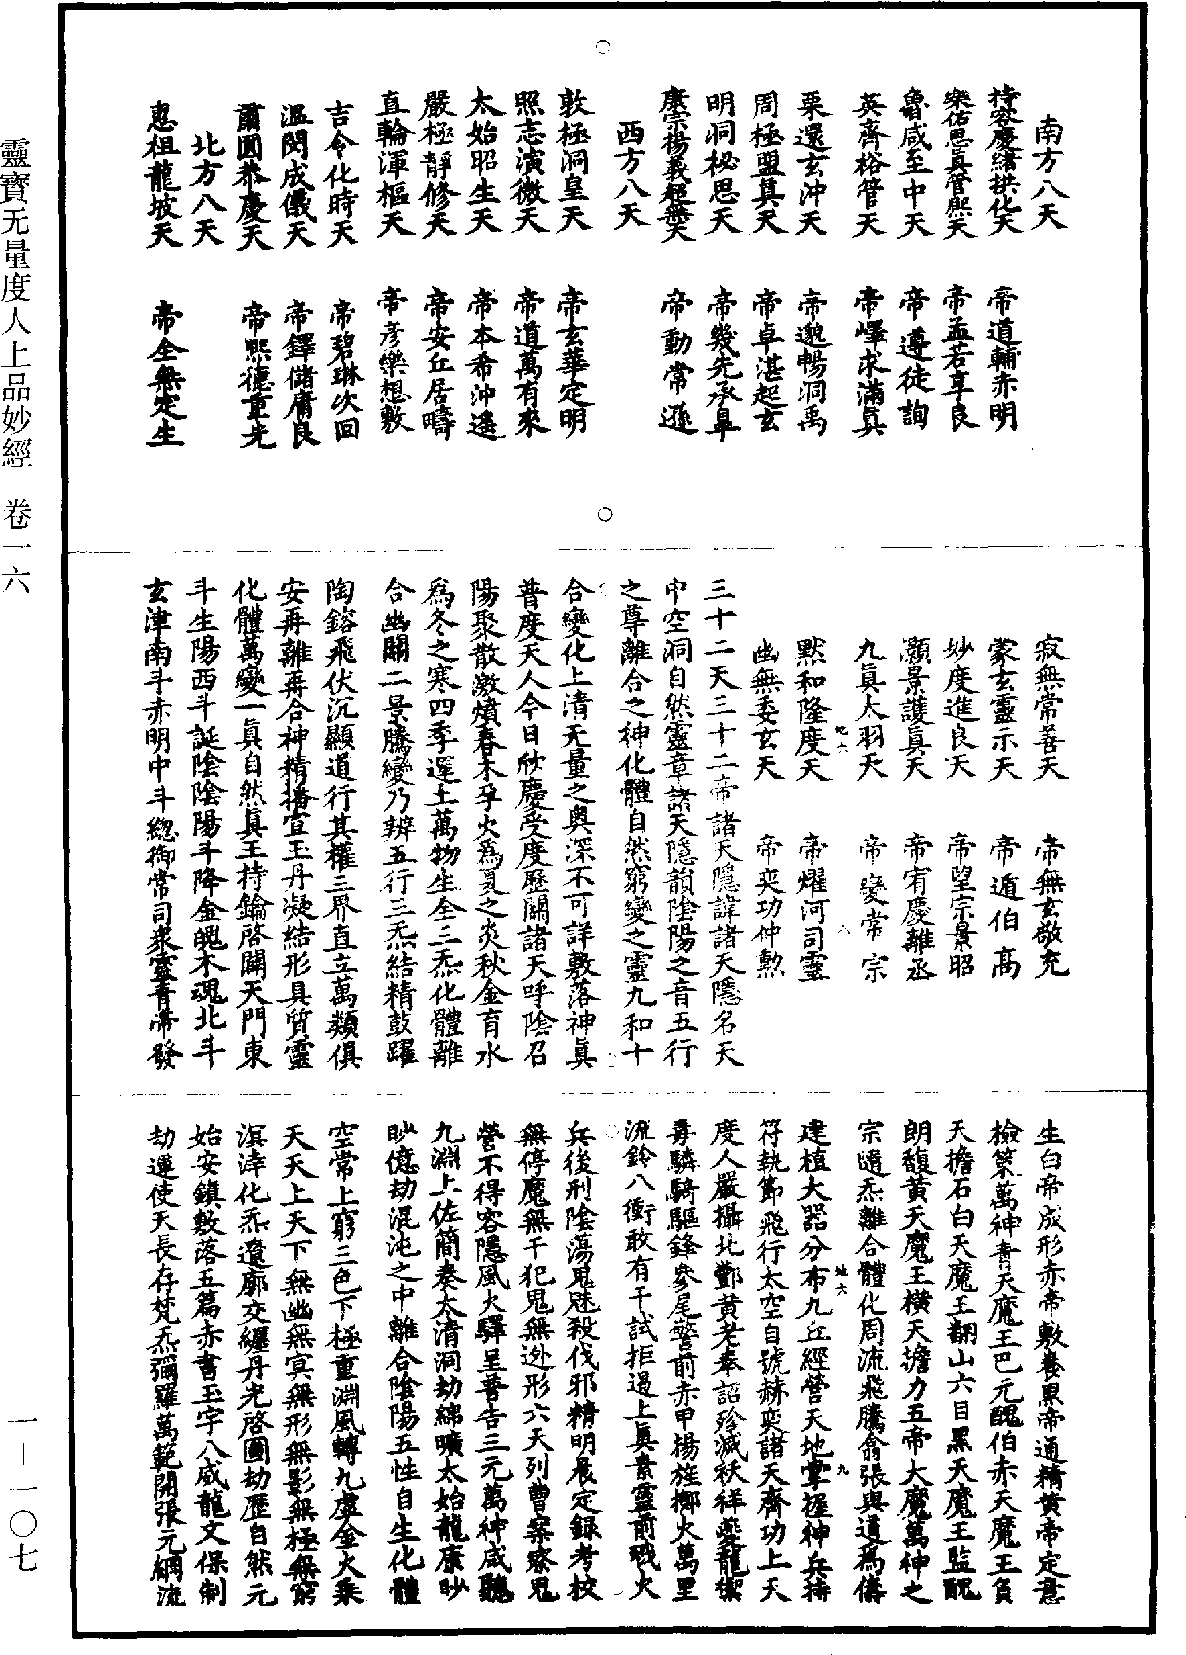 靈寶无量度人上品妙經　卷一六
南方八天
持容慶緒拱化天　帝道輔赤明
樂佑恩真管熙天　帝孟若草良
魯咸至中天　帝遵徒詢
英齊裕管天　帝嶧求滿真
栗還玄沖天　帝邈暢洞禹
周極盟真天　帝卓湛起玄
明洞秘思天　帝幾先承阜
康宗揚義超無天　帝動常遜
西方八天
敦極洞皇天　帝玄華定明
照志演微天　帝道萬有來
太始昭生天　帝本希沖遙
嚴極靜修天　帝安丘居疇
直輪渾樞天　帝彥樂想敷
吉令化時天　帝碧琳次回
溫閔成儀天　帝鐸儲庸良
爾圓泰慶天　帝熙德重先
北方八天
惠祖龍坡天　帝全無定生
寂無常善天　帝無玄敬充
蒙玄靈示天　帝遁伯高
妙度進良天　帝望宗景昭
顯景護真天　帝宥慶離丞
九真太羽天　帝變常宗
默和隆度天　帝燿河司靈
幽無委玄天　帝奕功仲勲
三十二天三十二帝諸天隱諱諸天隱名天
中空洞自然靈章諸天隱韻陰陽之音五行
之尊離合之神化體自然窮變之靈九和十
合變化上清无量之奥深不可詳敷落神真
普度天人今日欣慶受度歷關諸天呼陰召
陽聚散激熉春木孕火為夏之炎秋金育水
為冬之寒四季運土萬物生全三炁化體離
合幽關二景騰變乃辨五行三炁結精鼓躍
陶鎔飛伏沉顯道行其權三界直立萬類俱
安再離再合神精播宣玉丹凝結形具質靈
化體萬變一真自然真王持鑰啓關天門東
斗生陽西斗誕陰陰陽斗降金魄木魂北斗
玄津南斗赤明中斗總御常司衆靈青帝發
生白帝成形赤帝敷養黑帝通精黄帝定意
檢策萬神青天魔王巴元醜伯赤天魔王負
天擔石白天魔王翻山六目黑天魔王監醜
朗馥黄天魔王橫天擔力五帝大魔萬神之
宗隨炁離合體化周流飛騰翕張與道為儔
建植大器分布九丘經營天地掌握神兵持
符執節飛行太空自號赫奕諸天齊功上天
度人嚴攝北酆黄老奉詔殄滅祅祥變龍禦
毒驎騎驅鋒參尾警前赤甲揚旌擲火萬里
流鈴八衝敢有干試拒遏上真素靈前戟火
兵後刑陰蕩鬼魅殺伐邪精明晨定録考校
無停魔無干犯鬼無逃形六天列曹案察鬼
營不得容隱風火驛呈普告三元萬神咸聽
九淵上佐簡奏太清洞劫綿曠太始龍康眇
眇億劫混沌之中離合陰陽五性自生化體
空常上窮三色下極重淵風轉九虛金火乘
天天上天下無幽無冥無形無影無極無窮
溟涬化炁遼廓交纏丹光啓圖劫歷自然元
始安鎮敷落五篇赤書玉字八威龍文保制
劫運使天長存梵炁彌羅萬範開張元綱流
地六
八
地六
九
一—一〇七